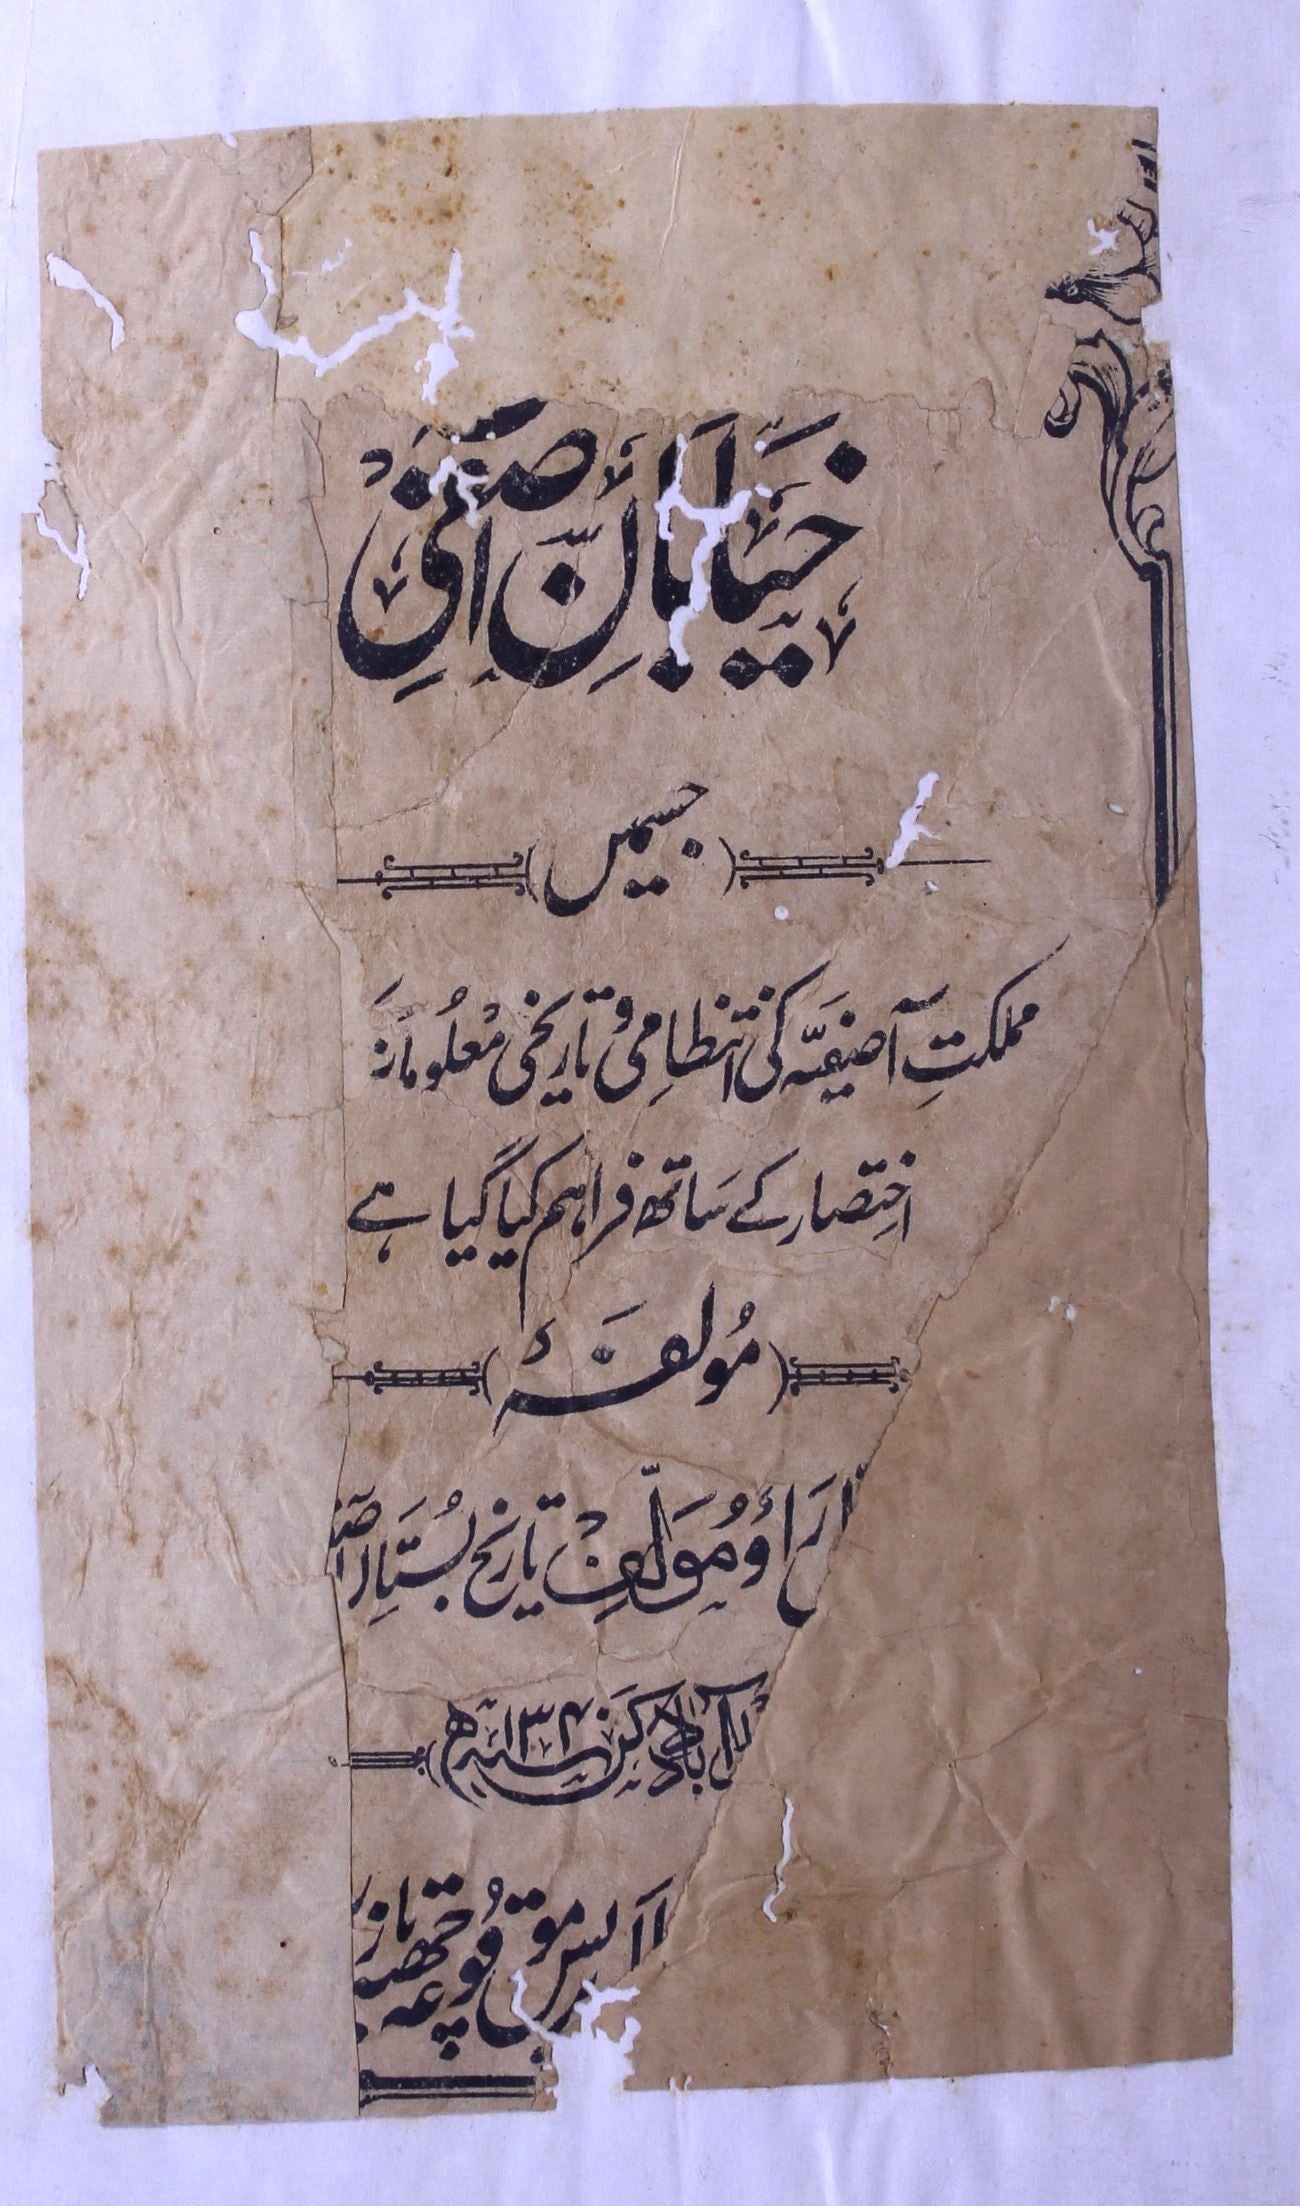 خیابانِ آصفی
(جسمیں)
مملکتِ آصفیہ کی انتظامی و تاریخی معلومات
اختصار کے ساتھ فراہم کیا گیا ہے
(مولفہٴ)
راؤ مُولّفِ تاریخ بُستانِ آصف
آباد دکن سنہ ۱۳۴۰ھ)
پریس موقوعہ چھتہ بازار